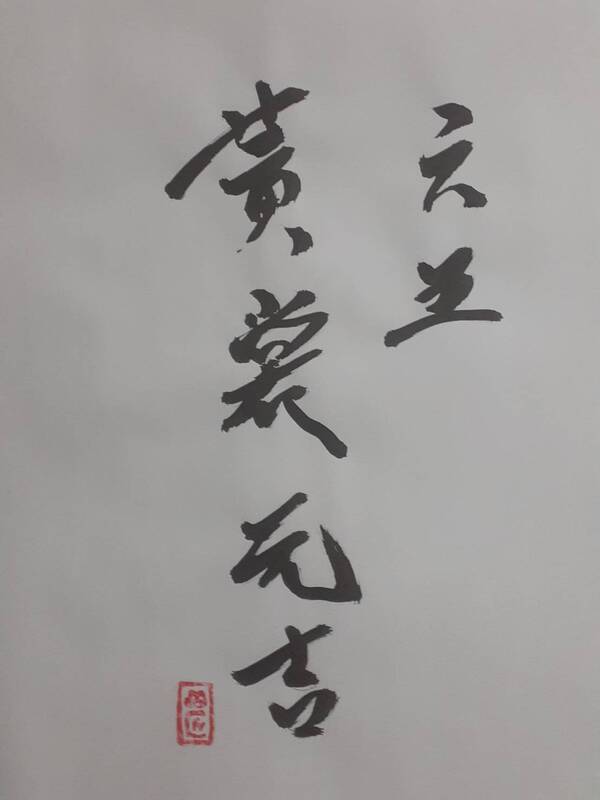 六五
黃裳元吉